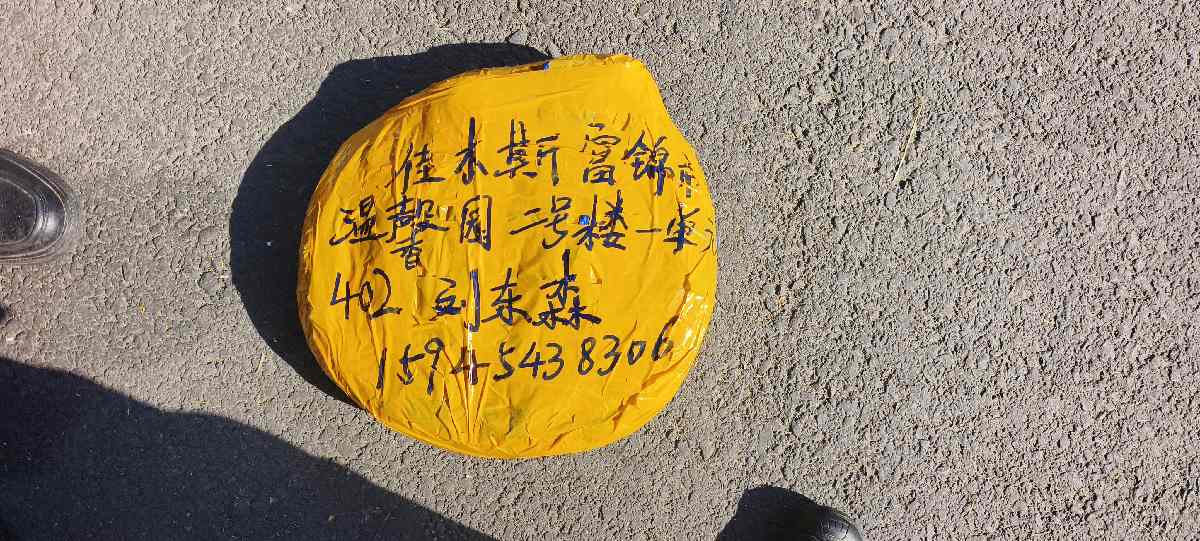 佳木斯富锦市
温馨园二号楼一单元
402 刘东森
15945438306